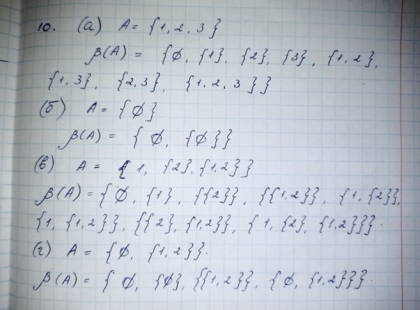 10. (а) A = {1, 2, 3}
β(A) = {∅, {1}, {2}, {3}, {1, 2},
{1, 3}, {2, 3}, {1, 2, 3}}
(б) A = {∅}
β(A) = {∅, {∅}}
(в) A = {1, {2}, {1, 2}}
β(A) = {∅, {1}, {{2}}, {{1, 2}}, {1, {2}},
{1, {1, 2}}, {{2}, {1, 2}}, {1, {2}, {1, 2}}}.
(г) A = {∅, {1, 2}}.
β(A) = {∅, {∅}, {{1, 2}}, {∅, {1, 2}}}.